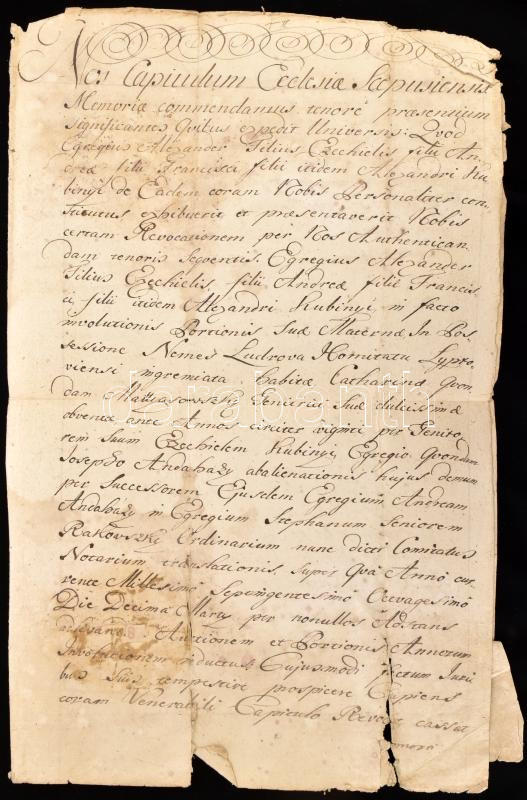 Nos Capitulum Ecclesiæ Scepusiensis
Memoriæ commendamus tenore præsentium
significantes Quibus expedit Universis: Quod
Egregius Alexander Filius Ezechielis filii An-
dreæ filii Francisci filii itidem Alexandri Ku-
binyi de Eadem coram Nobis Personaliter con-
stitutus exhibuerit et præsentaverit Nobis
certam Revocationem per Nos Authentican-
dam tenoris sequentis. Egregius Alexander
Filius Ezechielis filii Andreæ filii Francis-
ci filii itidem Alexandri Kubinyi in facto
involutionis Portionis Suæ Maternæ In Pos-
sessione Nemes Ludrova Comitatu Lypto-
viensi ingremiata habitæ Catharinæ Quon-
dam Matyasowszky Genitricis Suæ dulcissimæ
obventæ ante Annos circiter viginti per Genito-
rem suum Ezechielem Kubinyi Egregio Quondam
Josepho Andahazy abalienationis hujus demum
per Successorem Ejusdem Egregium Andream
Andahazy in Egregium Stephanum Seniorem
Rakovszky Ordinarium nunc dicti Comitatus
Notarium translationis, super Quâ Anno cur-
rente Millesimo Septingentesimo Octvagesimo
Die Decima Martii per nonullos
Auctionem et Portionis Annotum
Involutionem inductus Cujusmodi factum Juri-
bus Suis tempestive prospicere Cupiens
coram Venerabili Capitulo Revocat cassat
darabanth